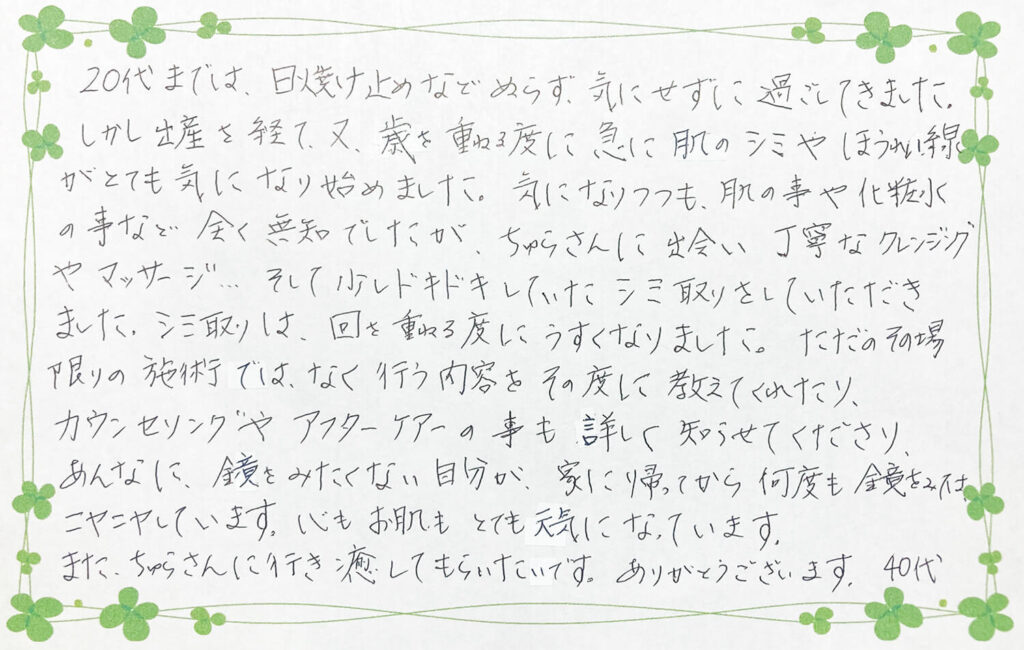 20代までは、日焼け止めなどぬらず、気にせずに過ごしてきました。
しかし出産を経て、又、歳を重ねる度に急に肌のシミやほうれい線
がとても気になり始めました。気になりつつも、肌の事や化粧水
の事など全く無知でしたが、ちゅらさんに出会い丁寧なクレンジング
やマッサージ…そして少しドキドキしていたシミ取りをしていただき
ました。シミ取りは、回を重ねる度にうすくなりました。ただのその場
限りの施術では、なく行う内容をその度に教えてくれたり、
カウンセリングやアフターケアーの事も詳しく知らせてくださり、
あんなに、鏡をみたくない自分が、家に帰ってから何度も鏡をみては、
ニヤニヤしています。心もお肌もとても元気になっています。
また、ちゅらさんに行き癒してもらいたいです。ありがとうございます。40代